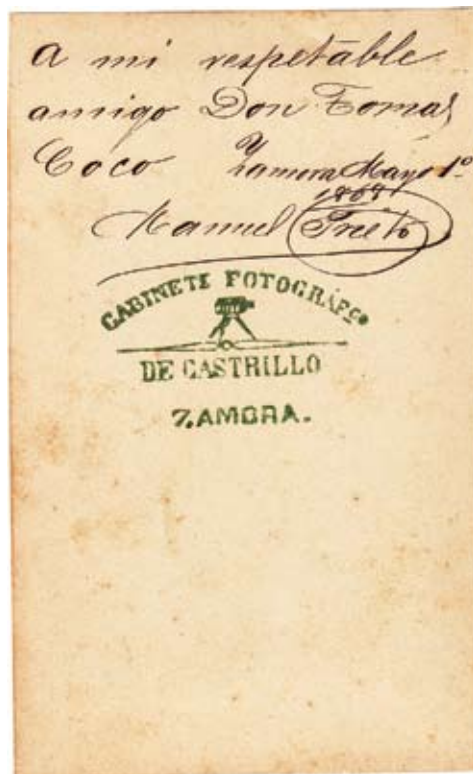 a mi respetable
amigo Don Tomas
Coco
Zamora Mayo 1º
1868
Manuel Prieto
GABINETE FOTOGRÁFCO
DE CASTRILLO
ZAMORA.